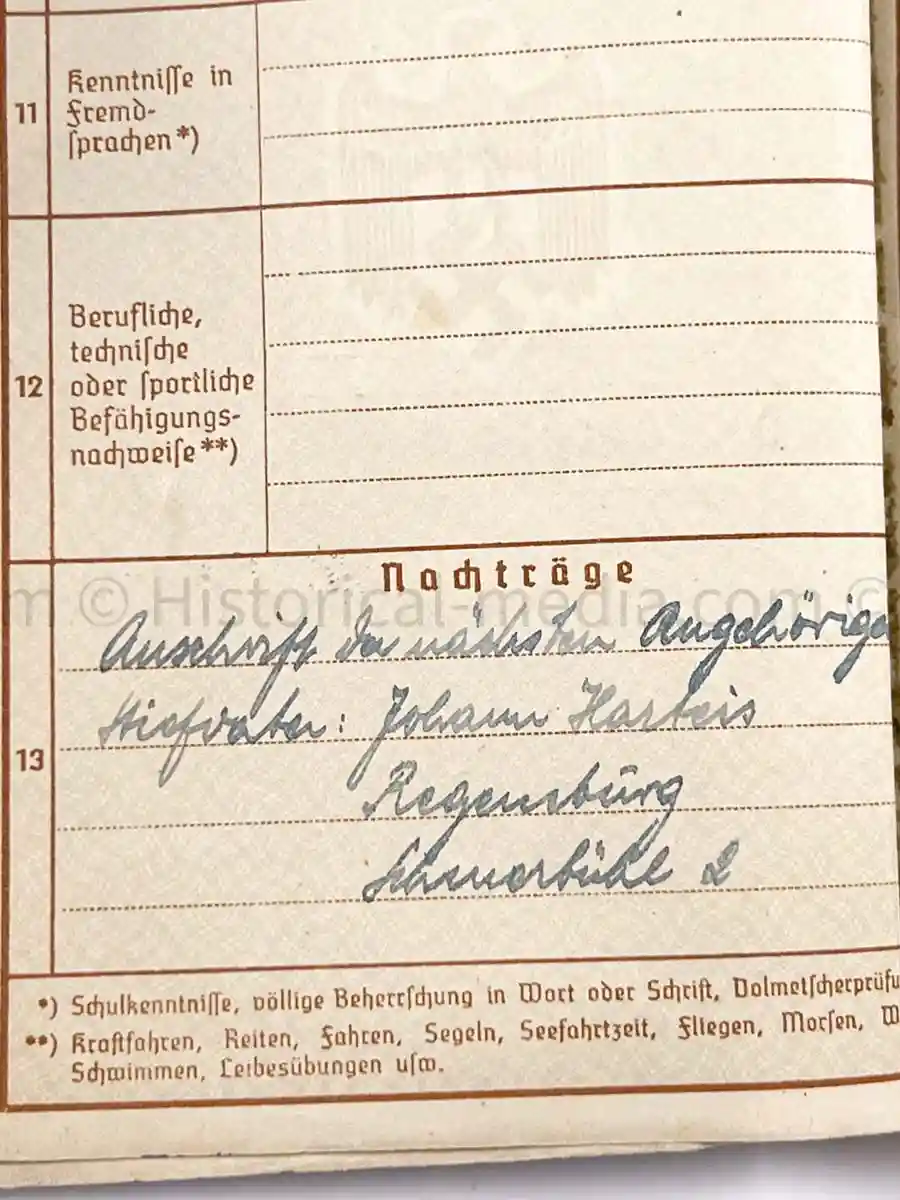 11
Kenntnisse in
Fremd-
sprachen*)
12
Berufliche,
technische
oder sportliche
Befähigungs-
nachweise**)
13
Nachträge
m © Historical-media.com ©
Anschrift der nächsten Angehörige
Stiefvater: Johann Harteis
Regensburg
2
*) Schulkenntnisse, völlige Beherrschung in Wort oder Schrift, Dolmetscherprüfu
**) Kraftfahren, Reiten, Fahren, Segeln, Seefahrtzeit, Fliegen, Morsen, W
Schwimmen, Leibesübungen usw.